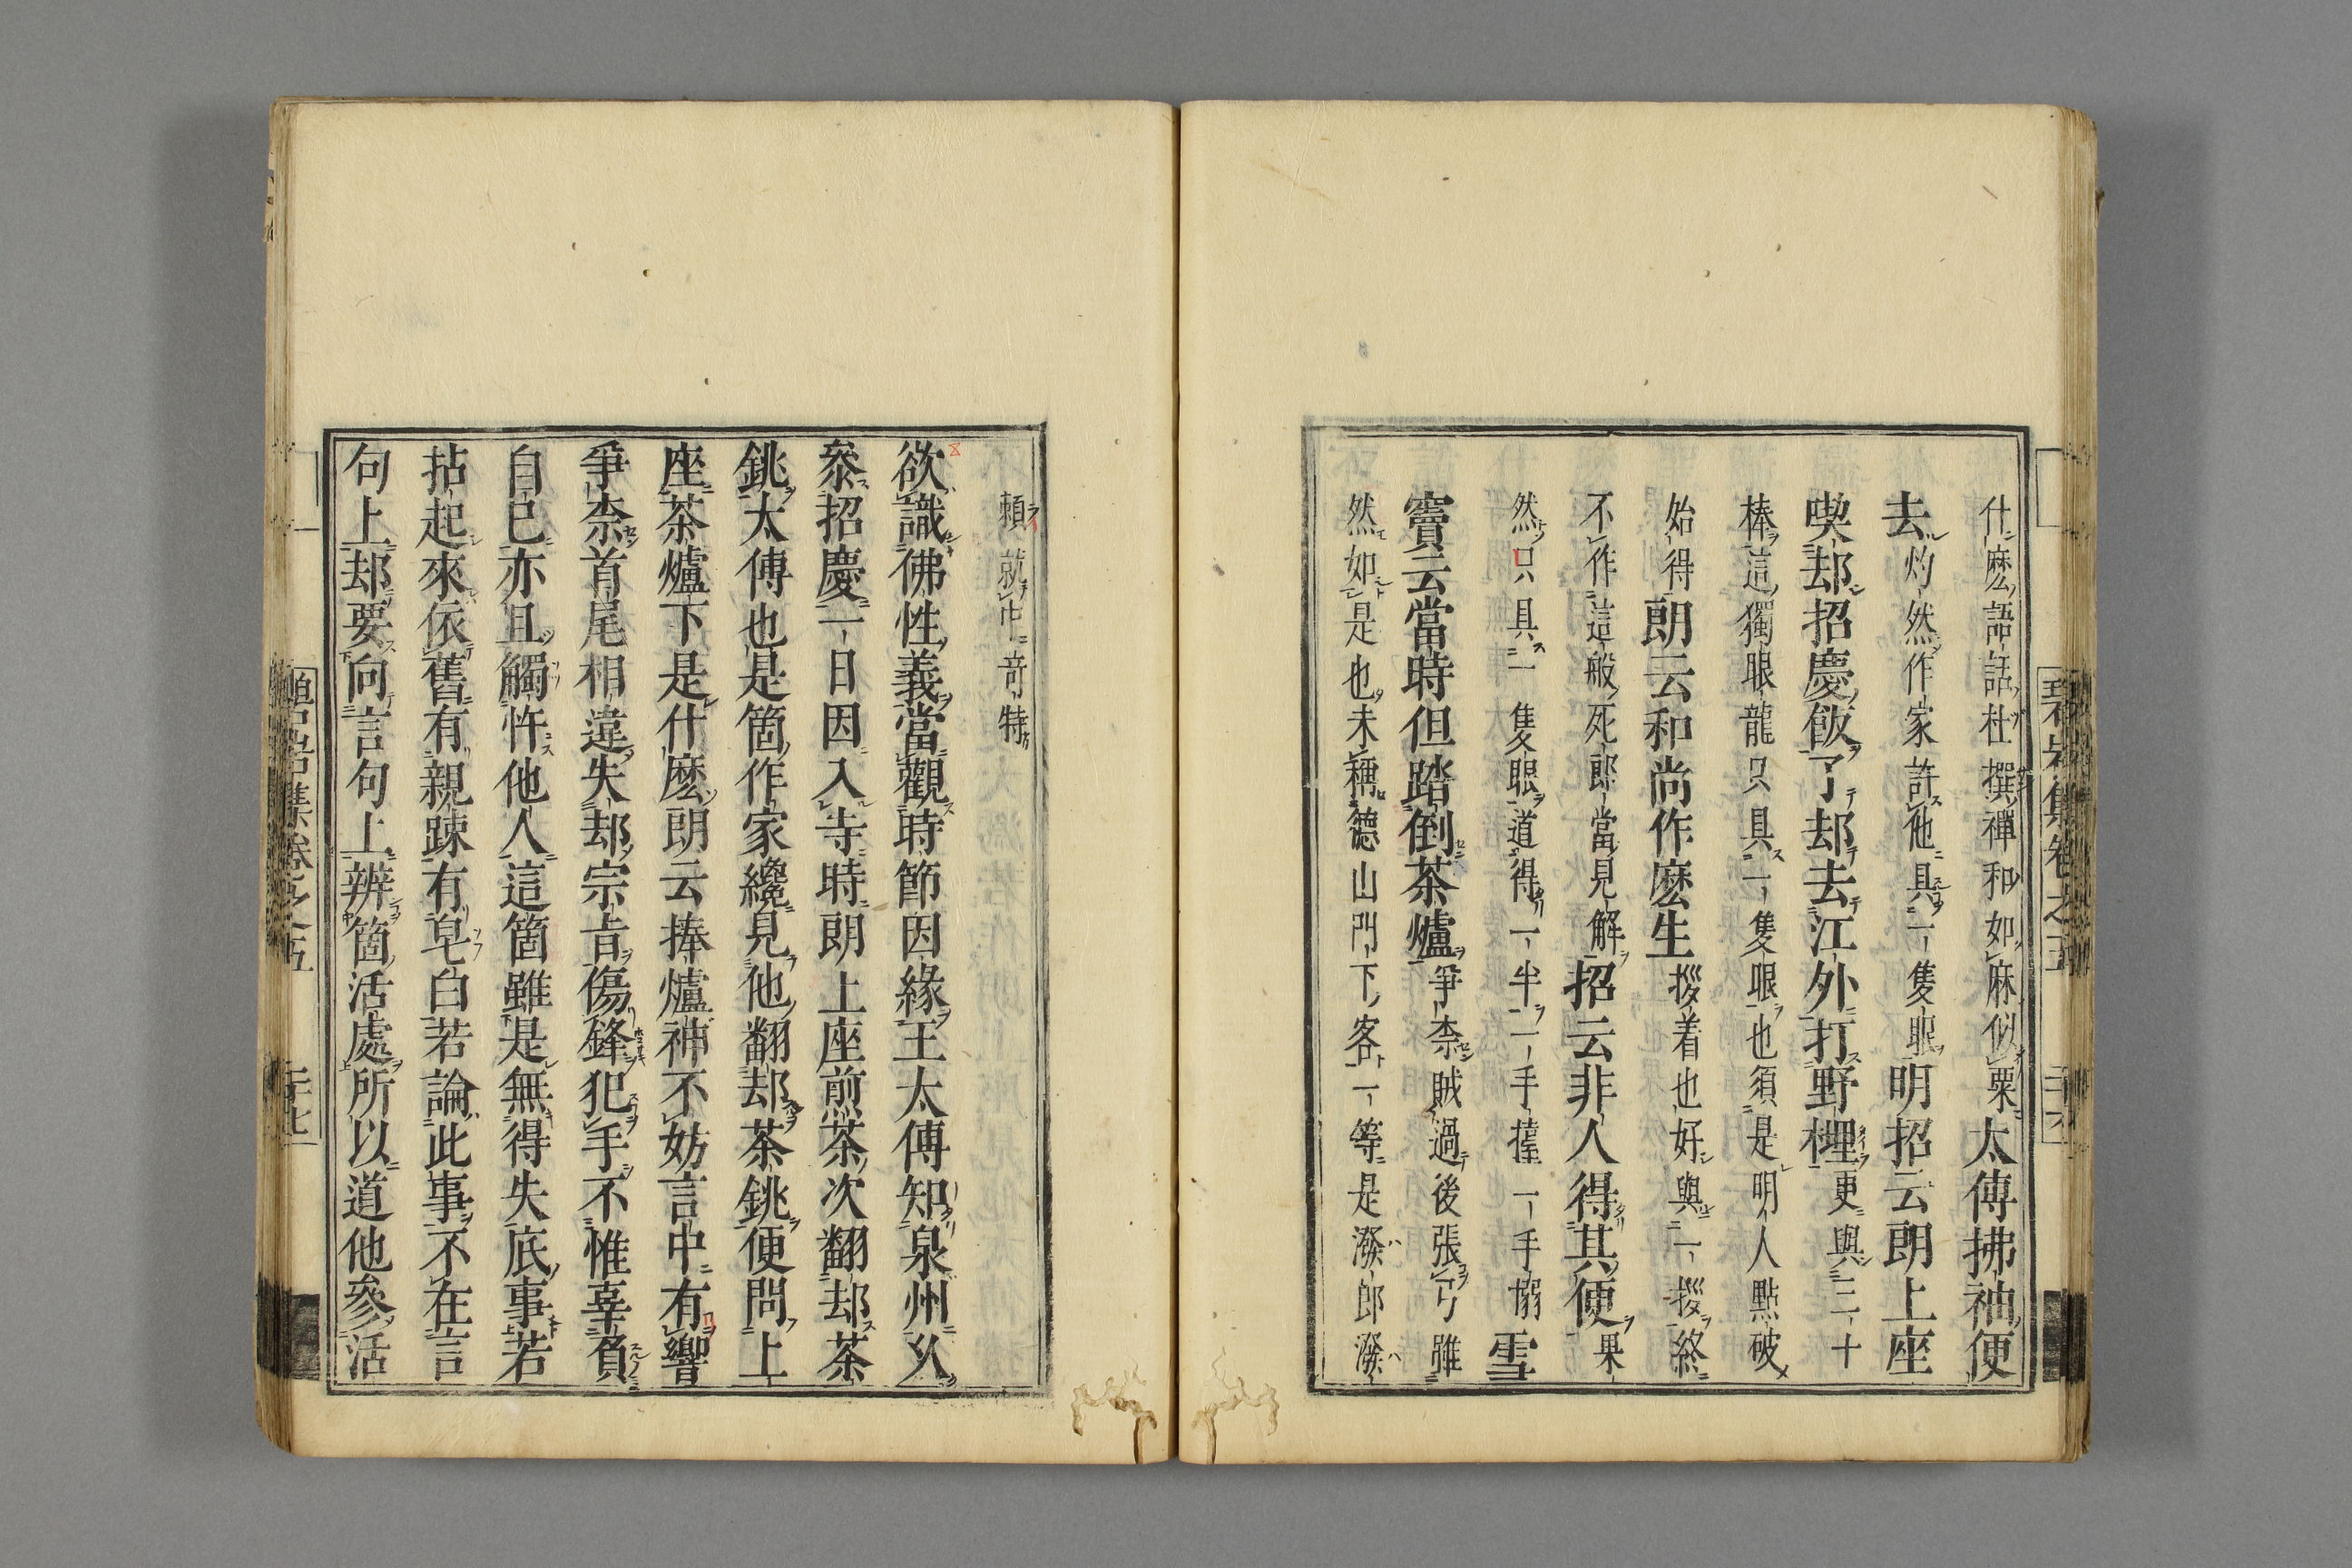 什麼語話杜撰禪和如麻似粟太傅拂袖便
去灼然作家許他具一隻眼明招云朗上座
喫却招慶飯了却去江外打野榸更與三十
棒這獨眼龍只具一隻眼也須是明人點破
始得朗云和尚作麼生拶着也好與一拶終
不作這般死郎當見解招云非人得其便果
然只具一隻眼道得一半一手擡一手搦雪
竇云當時但踏倒茶爐爭柰賊過後張弓雖
然如是也未稱德山門下客一等是潑郎潑
賴就中奇特
欲識佛性義當觀時節因緣王太傅知泉州久
叅招慶一日因入寺時朗上座煎茶次翻却茶
銚太傅也是箇作家纔見他翻却茶銚便問上
座茶爐下是什麼朗云捧爐神不妨言中有響
爭柰首尾相違失却宗旨傷鋒犯手不惟辜負
自己亦且觸忤他人這箇雖是無得失底事若
拈起來依舊有親踈有皂白若論此事不在言
句上却要向言句上辨箇活處所以道他參活
碧岩集卷之五
二十六
碧岩集卷之五
二十七